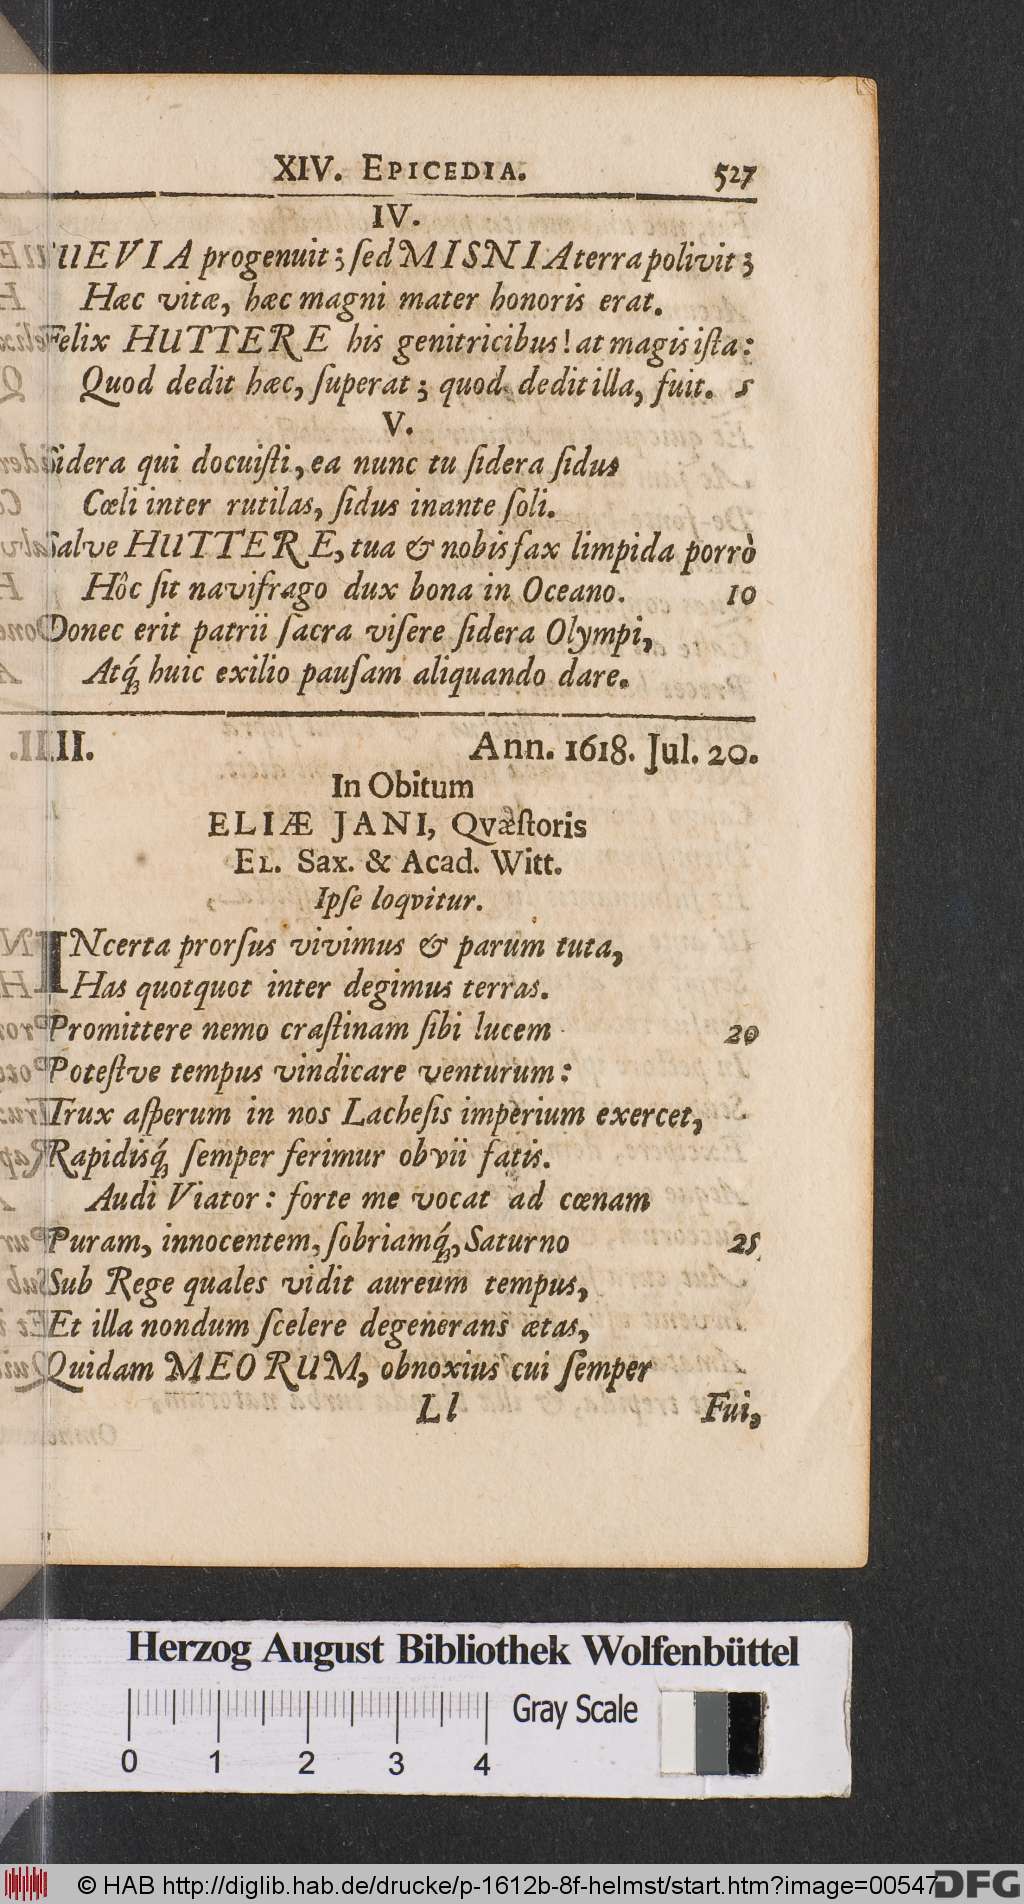 XIV. EPICEDIA. 527
IV.
SUEVIA progenuit; ſed MISNIA terra polivit;
Hæc vitæ, hæc magni mater honoris erat.
Felix HUTTERE his genitricibus! at magis iſta:
Quod dedit hæc, ſuperat; quod dedit illa, fuit. 5
V.
Sidera qui docuiſti, ea nunc tu ſidera ſidus
Cœli inter rutilas, ſidus inante ſoli.
Salve HUTTERE, tua & nobis fax limpida porrò
Hôc ſit navifrago dux bona in Oceano. 10
Donec erit patrii ſacra viſere ſidera Olympi,
Atq́; huic exilio pauſam aliquando dare.
III. Ann. 1618. Jul. 20.
In Obitum
ELIÆ JANI, Qvæſtoris
EL. Sax. & Acad. Witt.
Ipſe loqvitur.
INcerta prorſus vivimus & parum tuta,
Has quotquot inter degimus terras.
Promittere nemo craſtinam ſibi lucem 20
Poteſtve tempus vindicare venturum:
Trux aſperum in nos Lacheſis imperium exercet,
Rapidisq́; ſemper ferimur obvii fatis.
Audi Viator: forte me vocat ad cœnam
Puram, innocentem, ſobriamq́;, Saturno 25
Sub Rege quales vidit aureum tempus,
Et illa nondum ſcelere degenerans ætas,
Quidam MEORUM, obnoxius cui ſemper
Ll Fui,
Herzog August Bibliothek Wolfenbüttel
Gray Scale
0 1 2 3 4
© HAB http://diglib.hab.de/drucke/p-1612b-8f-helmst/start.htm?image=00547
DFG